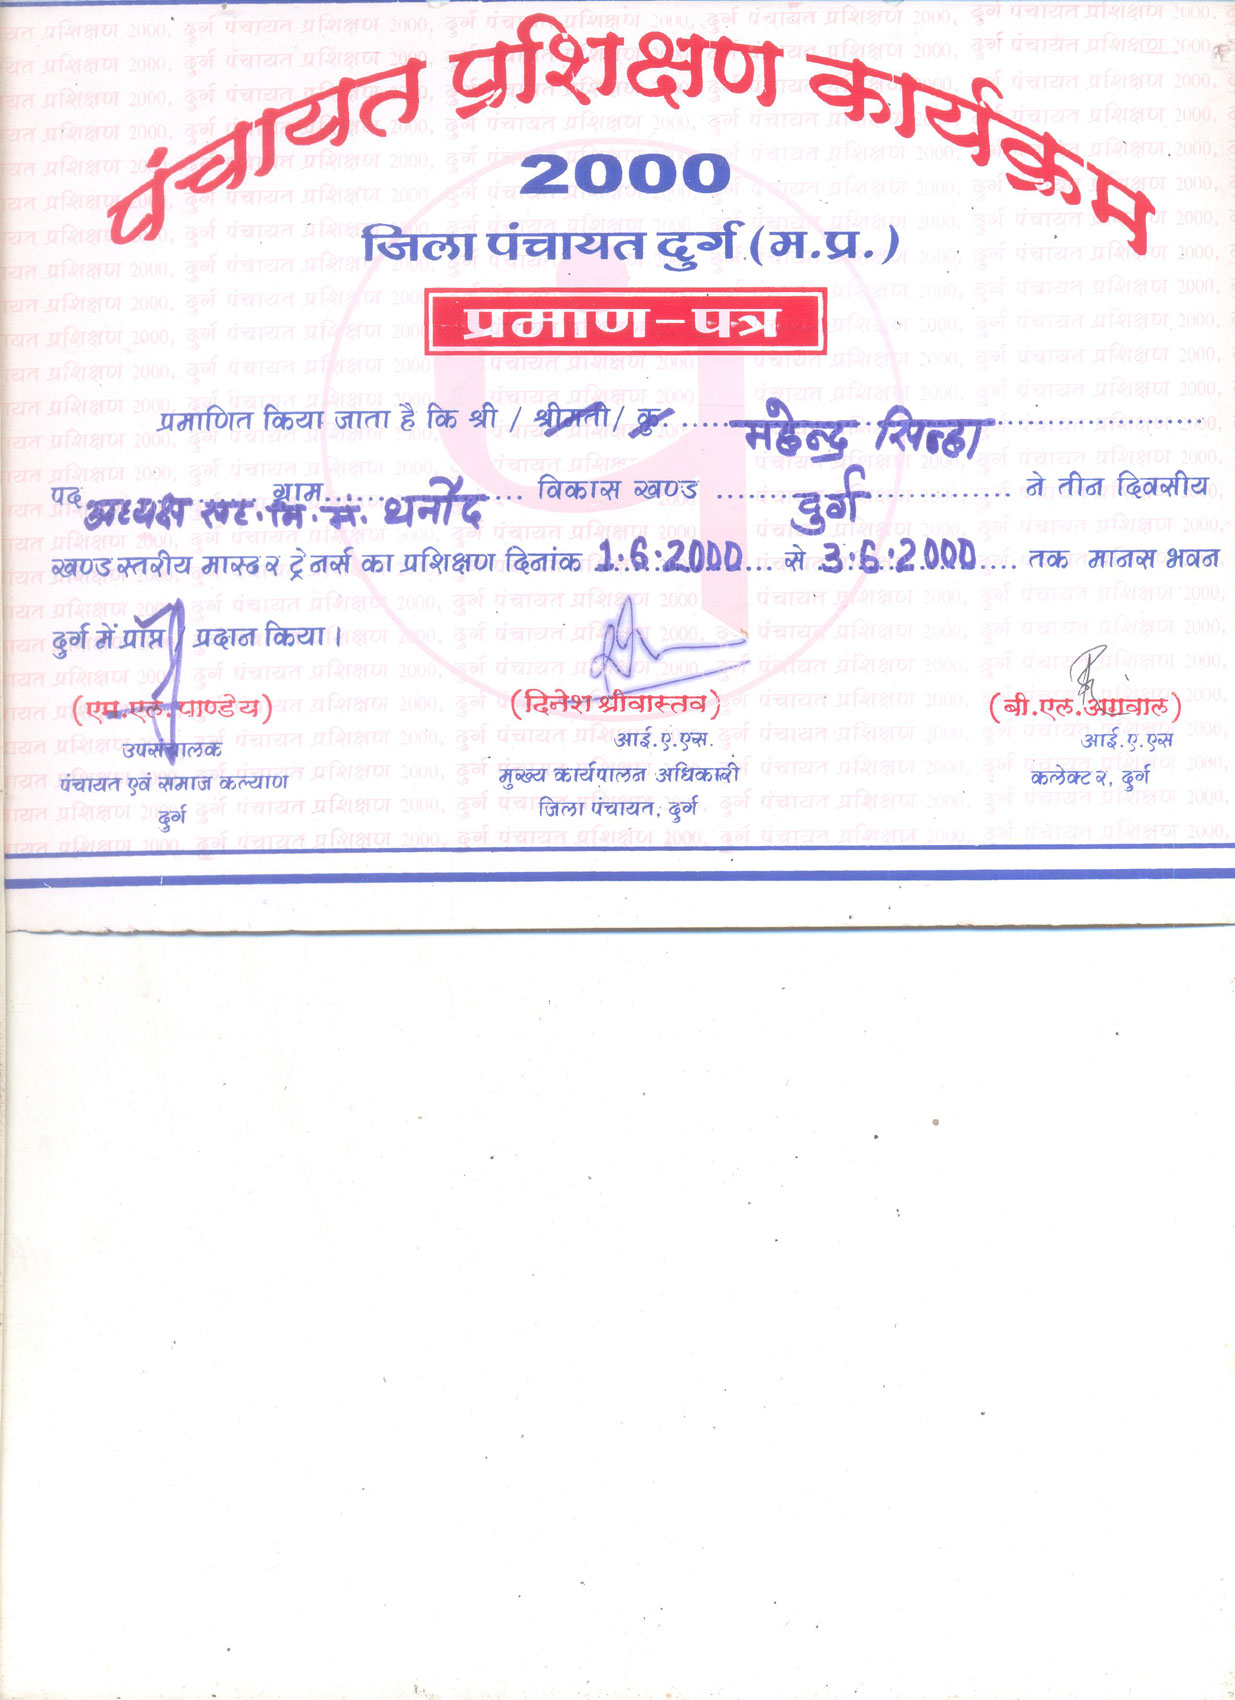 पंचायत प्रशिक्षण कार्यक्रम
2000
जिला पंचायत दुर्ग (म.प्र.)
प्रमाण-पत्र
प्रमाणित किया जाता है कि श्री / श्रीमती / कु. महेन्द्र सिन्हा
पद अध्यक्ष ग्राम थनौद विकास खण्ड दुर्ग ने तीन दिवसीय
खण्ड स्तरीय मास्टर ट्रेनर्स का प्रशिक्षण दिनांक 1.6.2000 से 3.6.2000 तक मानस भवन
दुर्ग में प्राप्त / प्रदान किया।
(एम.एल.पाण्डेय) (दिनेश श्रीवास्तव) (बी.एल.अग्रवाल)
उपसंचालक आई.ए.एस. आई.ए.एस
पंचायत एवं समाज कल्याण मुख्य कार्यपालन अधिकारी कलेक्टर, दुर्ग
दुर्ग जिला पंचायत, दुर्ग